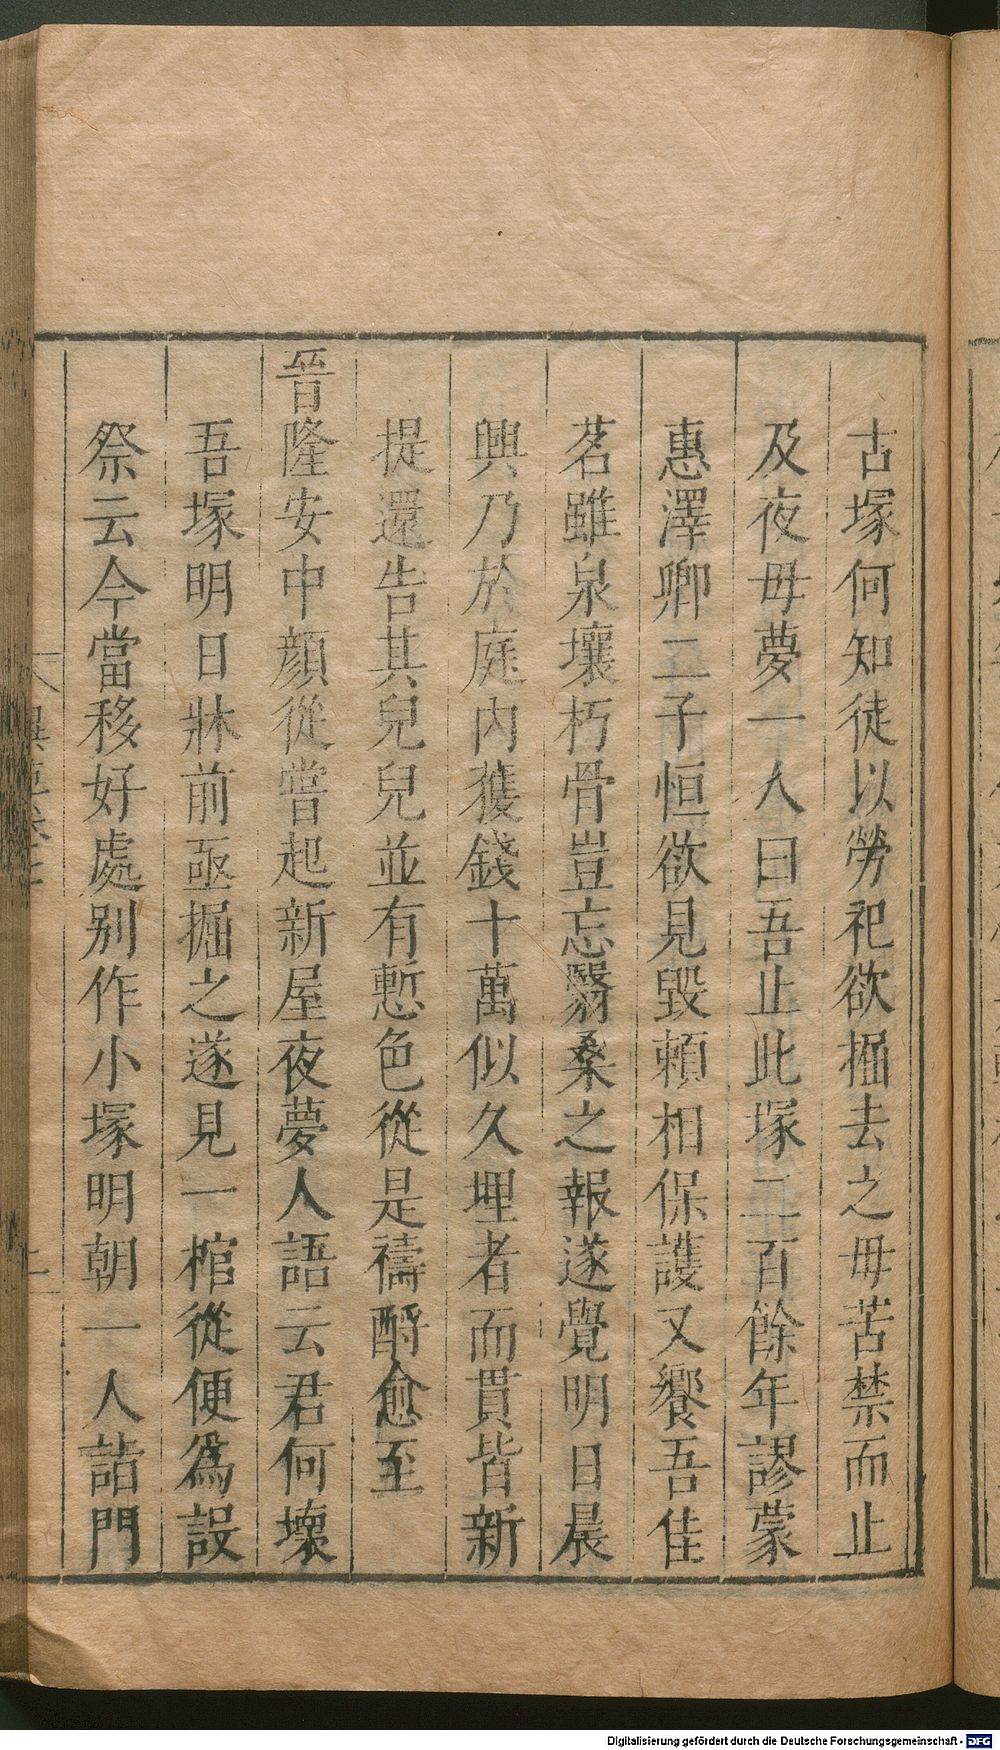 古塚何知徒以勞祀欲掘去之毋苦禁而止
及夜毋夢一人曰吾止此塚二百餘年謬蒙
惠澤卿二子恒欲見毀賴相保護又饗吾佳
茗雖泉壤朽骨豈忘翳桑之報遂覺明日晨
興乃於庭內獲錢十萬似久埋者而貫皆新
提還告其兒兒並有慙色從是禱酹愈至
晉隆安中顏從嘗起新屋夜夢人語云君何壞
吾塚明日牀前亟掘之遂見一棺從便為設
祭云今當移好處別作小塚明朝一人詣門
Digitalisierung gefördert durch die Deutsche Forschungsgemeinschaft - DFG